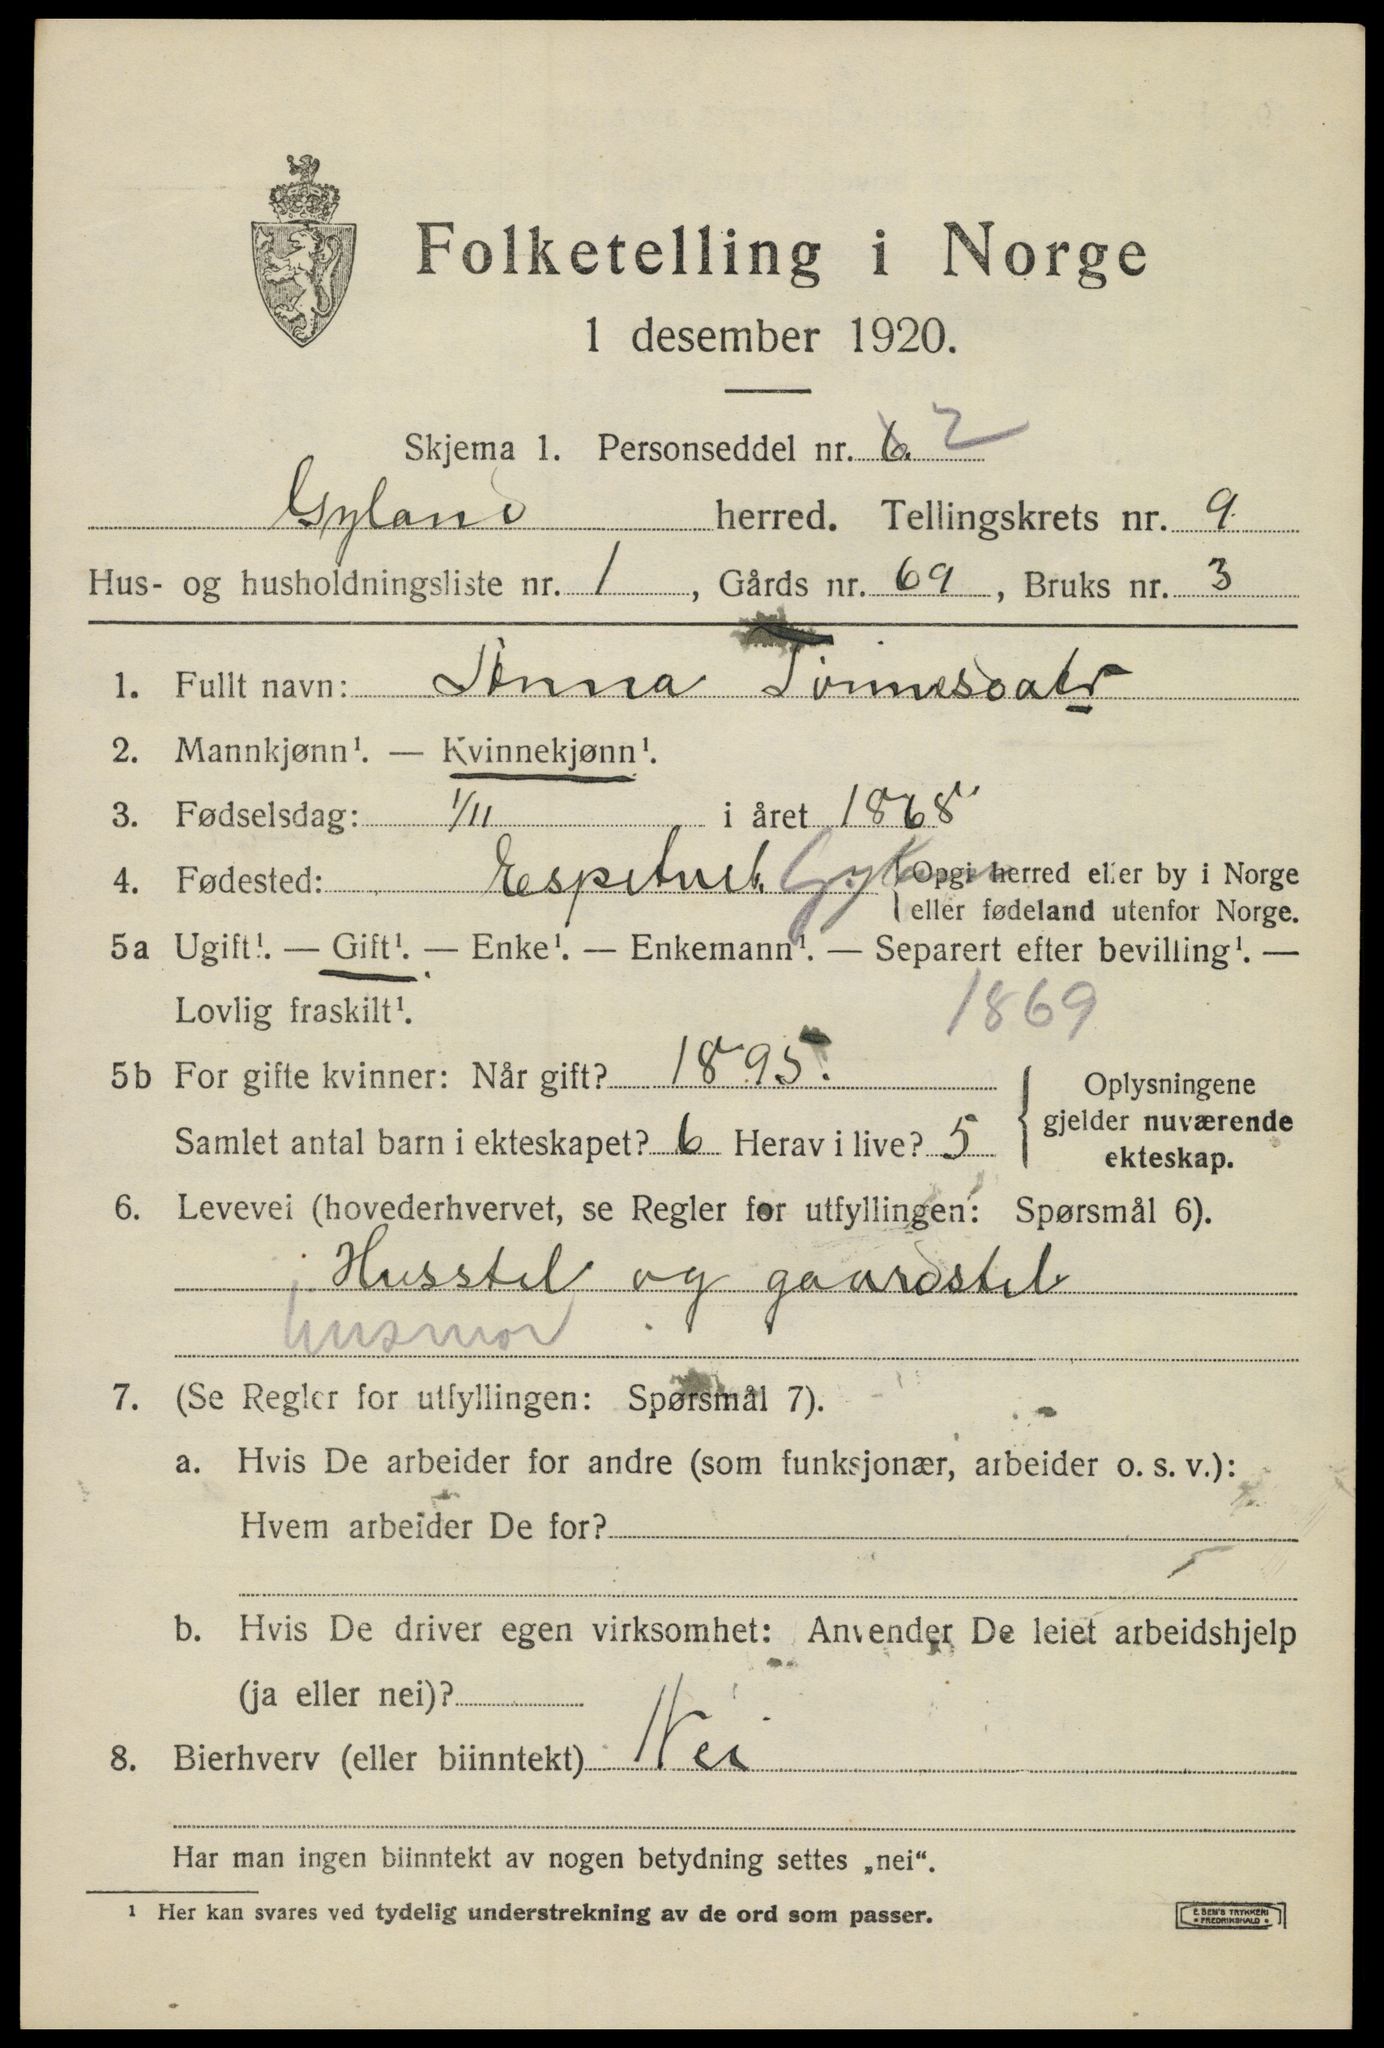 Folketelling i Norge
1 desember 1920.
Skjema 1. Personseddel nr. 6. 2
Gyland herred. Tellingskrets nr. 9
Hus- og husholdningsliste nr. 1, Gårds nr. 69, Bruks nr. 3
1. Fullt navn: Anna Tönnesdatr
2. Mannkjønn¹. — Kvinnekjønn¹.
3. Fødselsdag: 1/11 i året 1868
4. Fødested: Opgi herred eller by i Norge
eller fødeland utenfor Norge.
5a Ugift¹. — Gift¹. — Enke¹. — Enkemann¹. — Separert efter bevilling¹. —
Lovlig fraskilt¹. 1869
5b For gifte kvinner: Når gift? 1895.
Samlet antal barn i ekteskapet? 6 Herav i live? 5
Oplysningene
gjelder nuværende
ekteskap.
6. Levevei (hovederhvervet, se Regler for utfyllingen: Spørsmål 6).
Husstel og gaardstel
husmor
7. (Se Regler for utfyllingen: Spørsmål 7).
a. Hvis De arbeider for andre (som funksjonær, arbeider o. s. v.):
Hvem arbeider De for?
b. Hvis De driver egen virksomhet: Anvender De leiet arbeidshjelp
(ja eller nei)?
8. Bierhverv (eller biinntekt) Nei
Har man ingen biinntekt av nogen betydning settes „nei“.
¹ Her kan svares ved tydelig understrekning av de ord som passer.
E. SEM'S TRYKKERI
FREDRIKSHALD